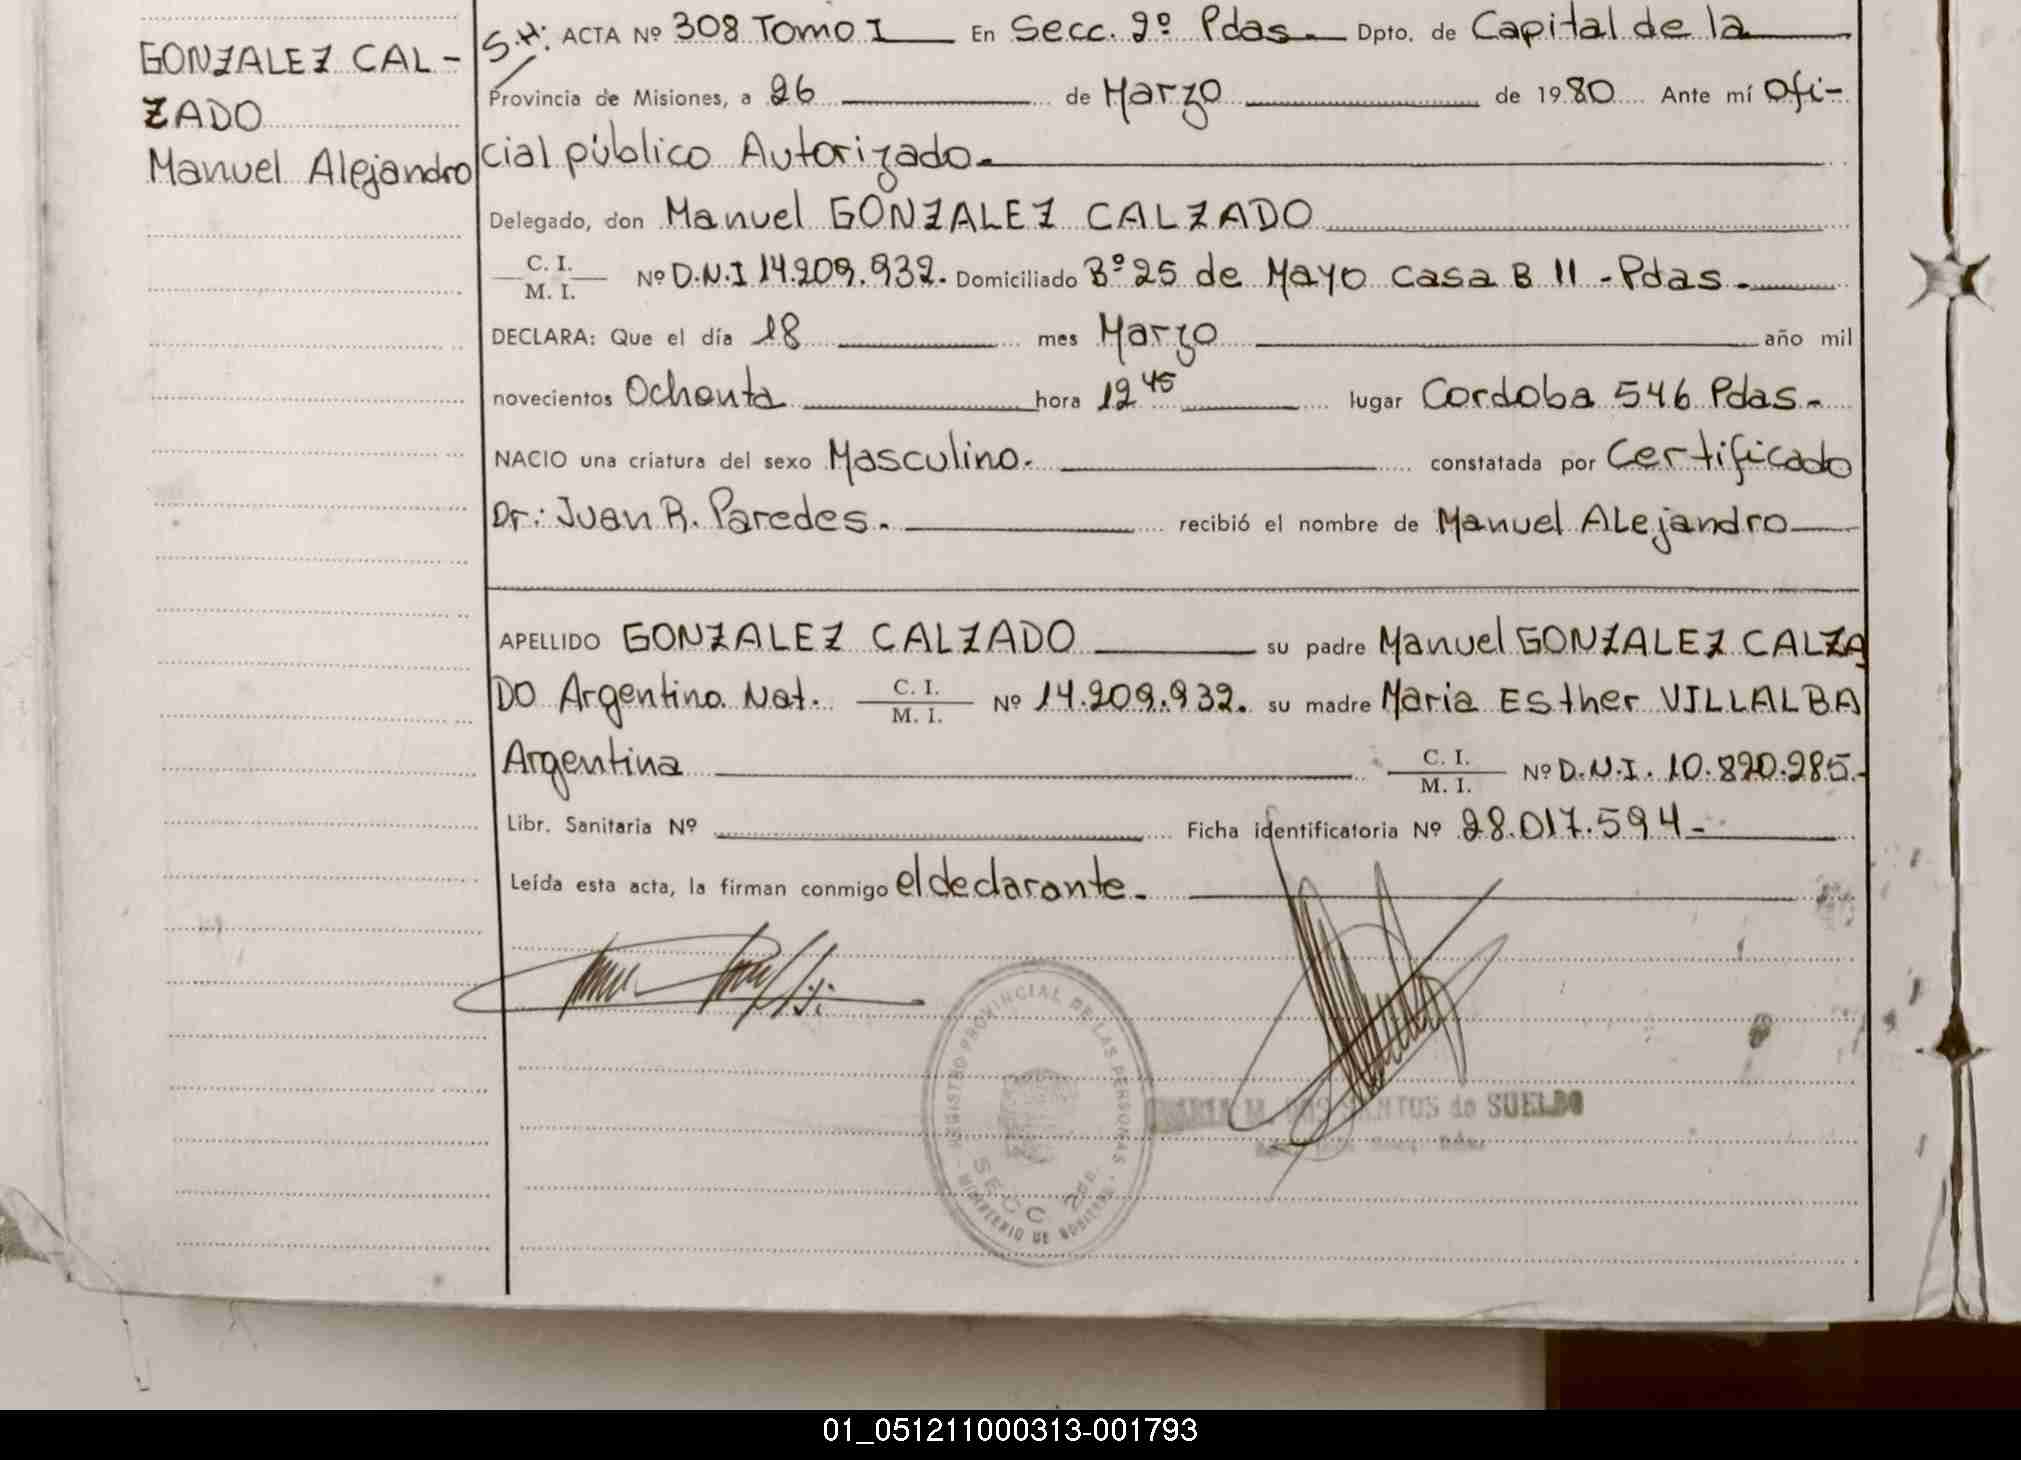 GONZALEZ CAL-
ZADO
Manuel Alejandro
S.H: ACTA Nº 308 Tomo I En Secc. 2º Pdas. Dpto. de Capital de la
Provincia de Misiones, a 26 de Marzo de 1980 Ante mí Ofi-
cial público Autorizado.
Delegado, don Manuel GONZALEZ CALZADO
C. I.
M. I.
Nº D.N.I 14.209.932. Domiciliado Bº 25 de Mayo Casa B 11 - Pdas.
DECLARA: Que el día 18 mes Marzo año mil
novecientos Ochenta hora 12 45 lugar Cordoba 546 Pdas.
NACIO una criatura del sexo Masculino. constatada por Certificado
Dr: Juan R. Paredes. recibió el nombre de Manuel Alejandro
APELLIDO GONZALEZ CALZADO su padre Manuel GONZALEZ CALZA
DO Argentino. Nat. C. I. M. I. Nº 14.209.932. su madre Maria Esther VILLALBA
Argentina C. I. M. I. Nº D.N.I. 10.820.285.
Libr. Sanitaria Nº Ficha identificatoria Nº 28.017.594-
Leída esta acta, la firman conmigo el declarante.
REGISTRO PROVINCIAL DE LAS PERSONAS
SECC 2da.
MINISTERIO DE GOBIERNO
MARIA M. DOS SANTOS de SUELDO
01_051211000313-001793